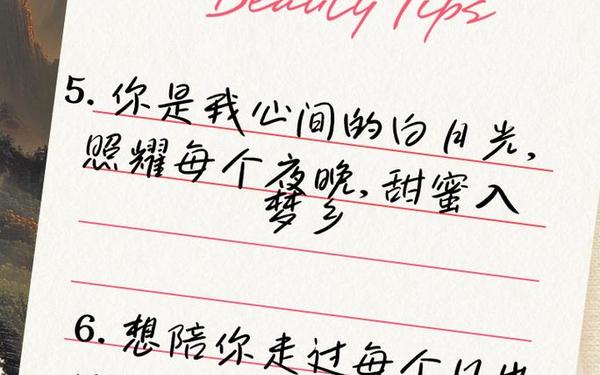 Beauty Tips
5. 你是我心间的白月光,
照耀每个夜晚,甜蜜入
梦乡
6. 想陪你走过每个日出